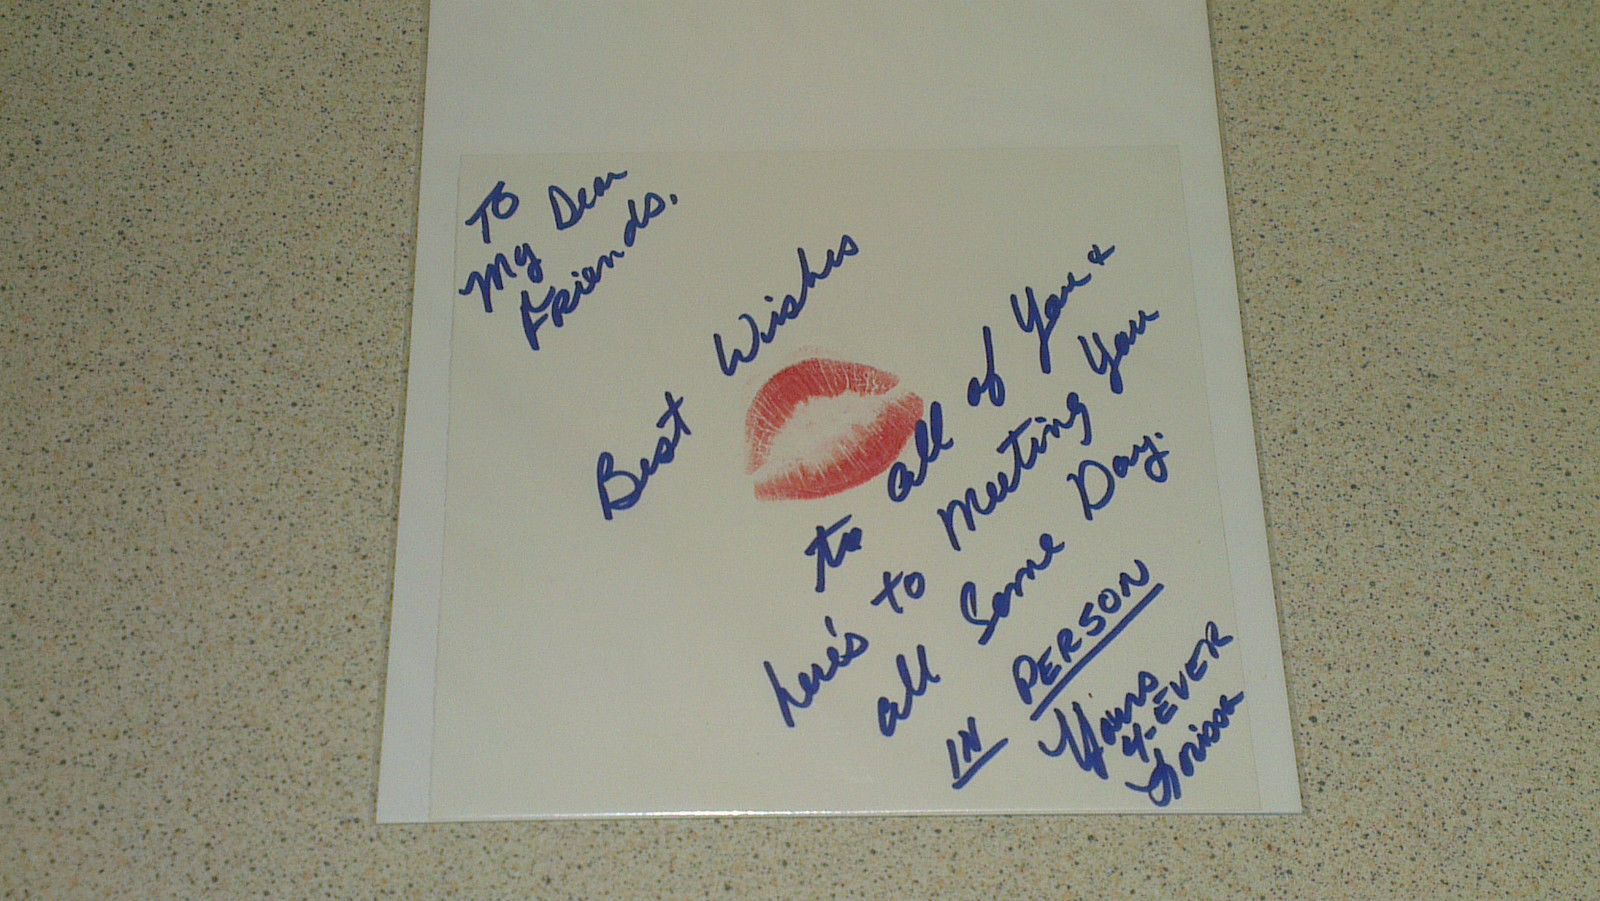 To
My Dear
Friends.
Best Wishes
to all of You &
here's to Meeting You
all Some Day.
IN PERSON
Yours
4-EVER